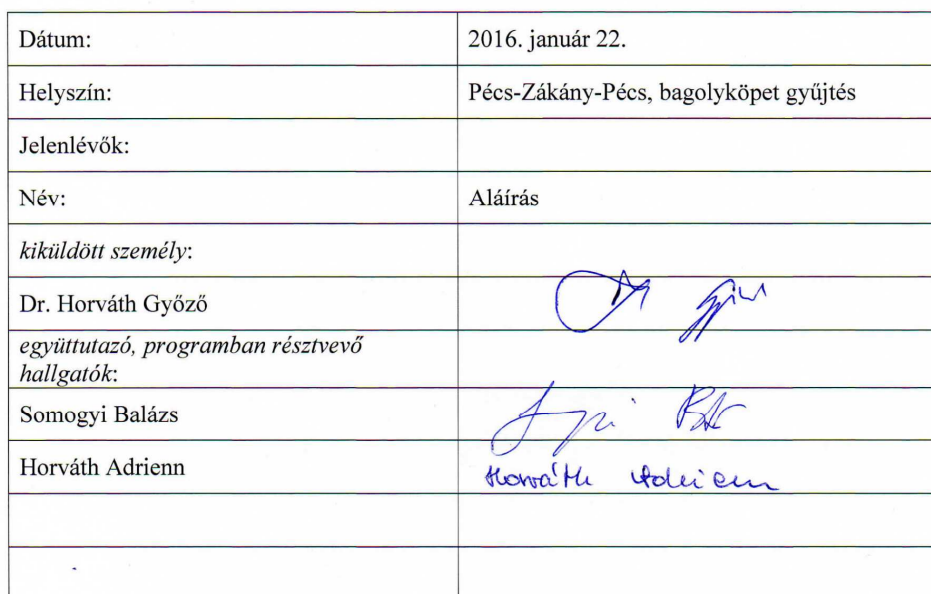 Dátum: 2016. január 22.
Helyszín: Pécs-Zákány-Pécs, bagolyköpet gyűjtés
Jelenlévők:
Név: Aláírás
kiküldött személy:
Dr. Horváth Győző
együttutazó, programban résztvevő
hallgatók:
Somogyi Balázs
Horváth Adrienn Horváth Adrienn